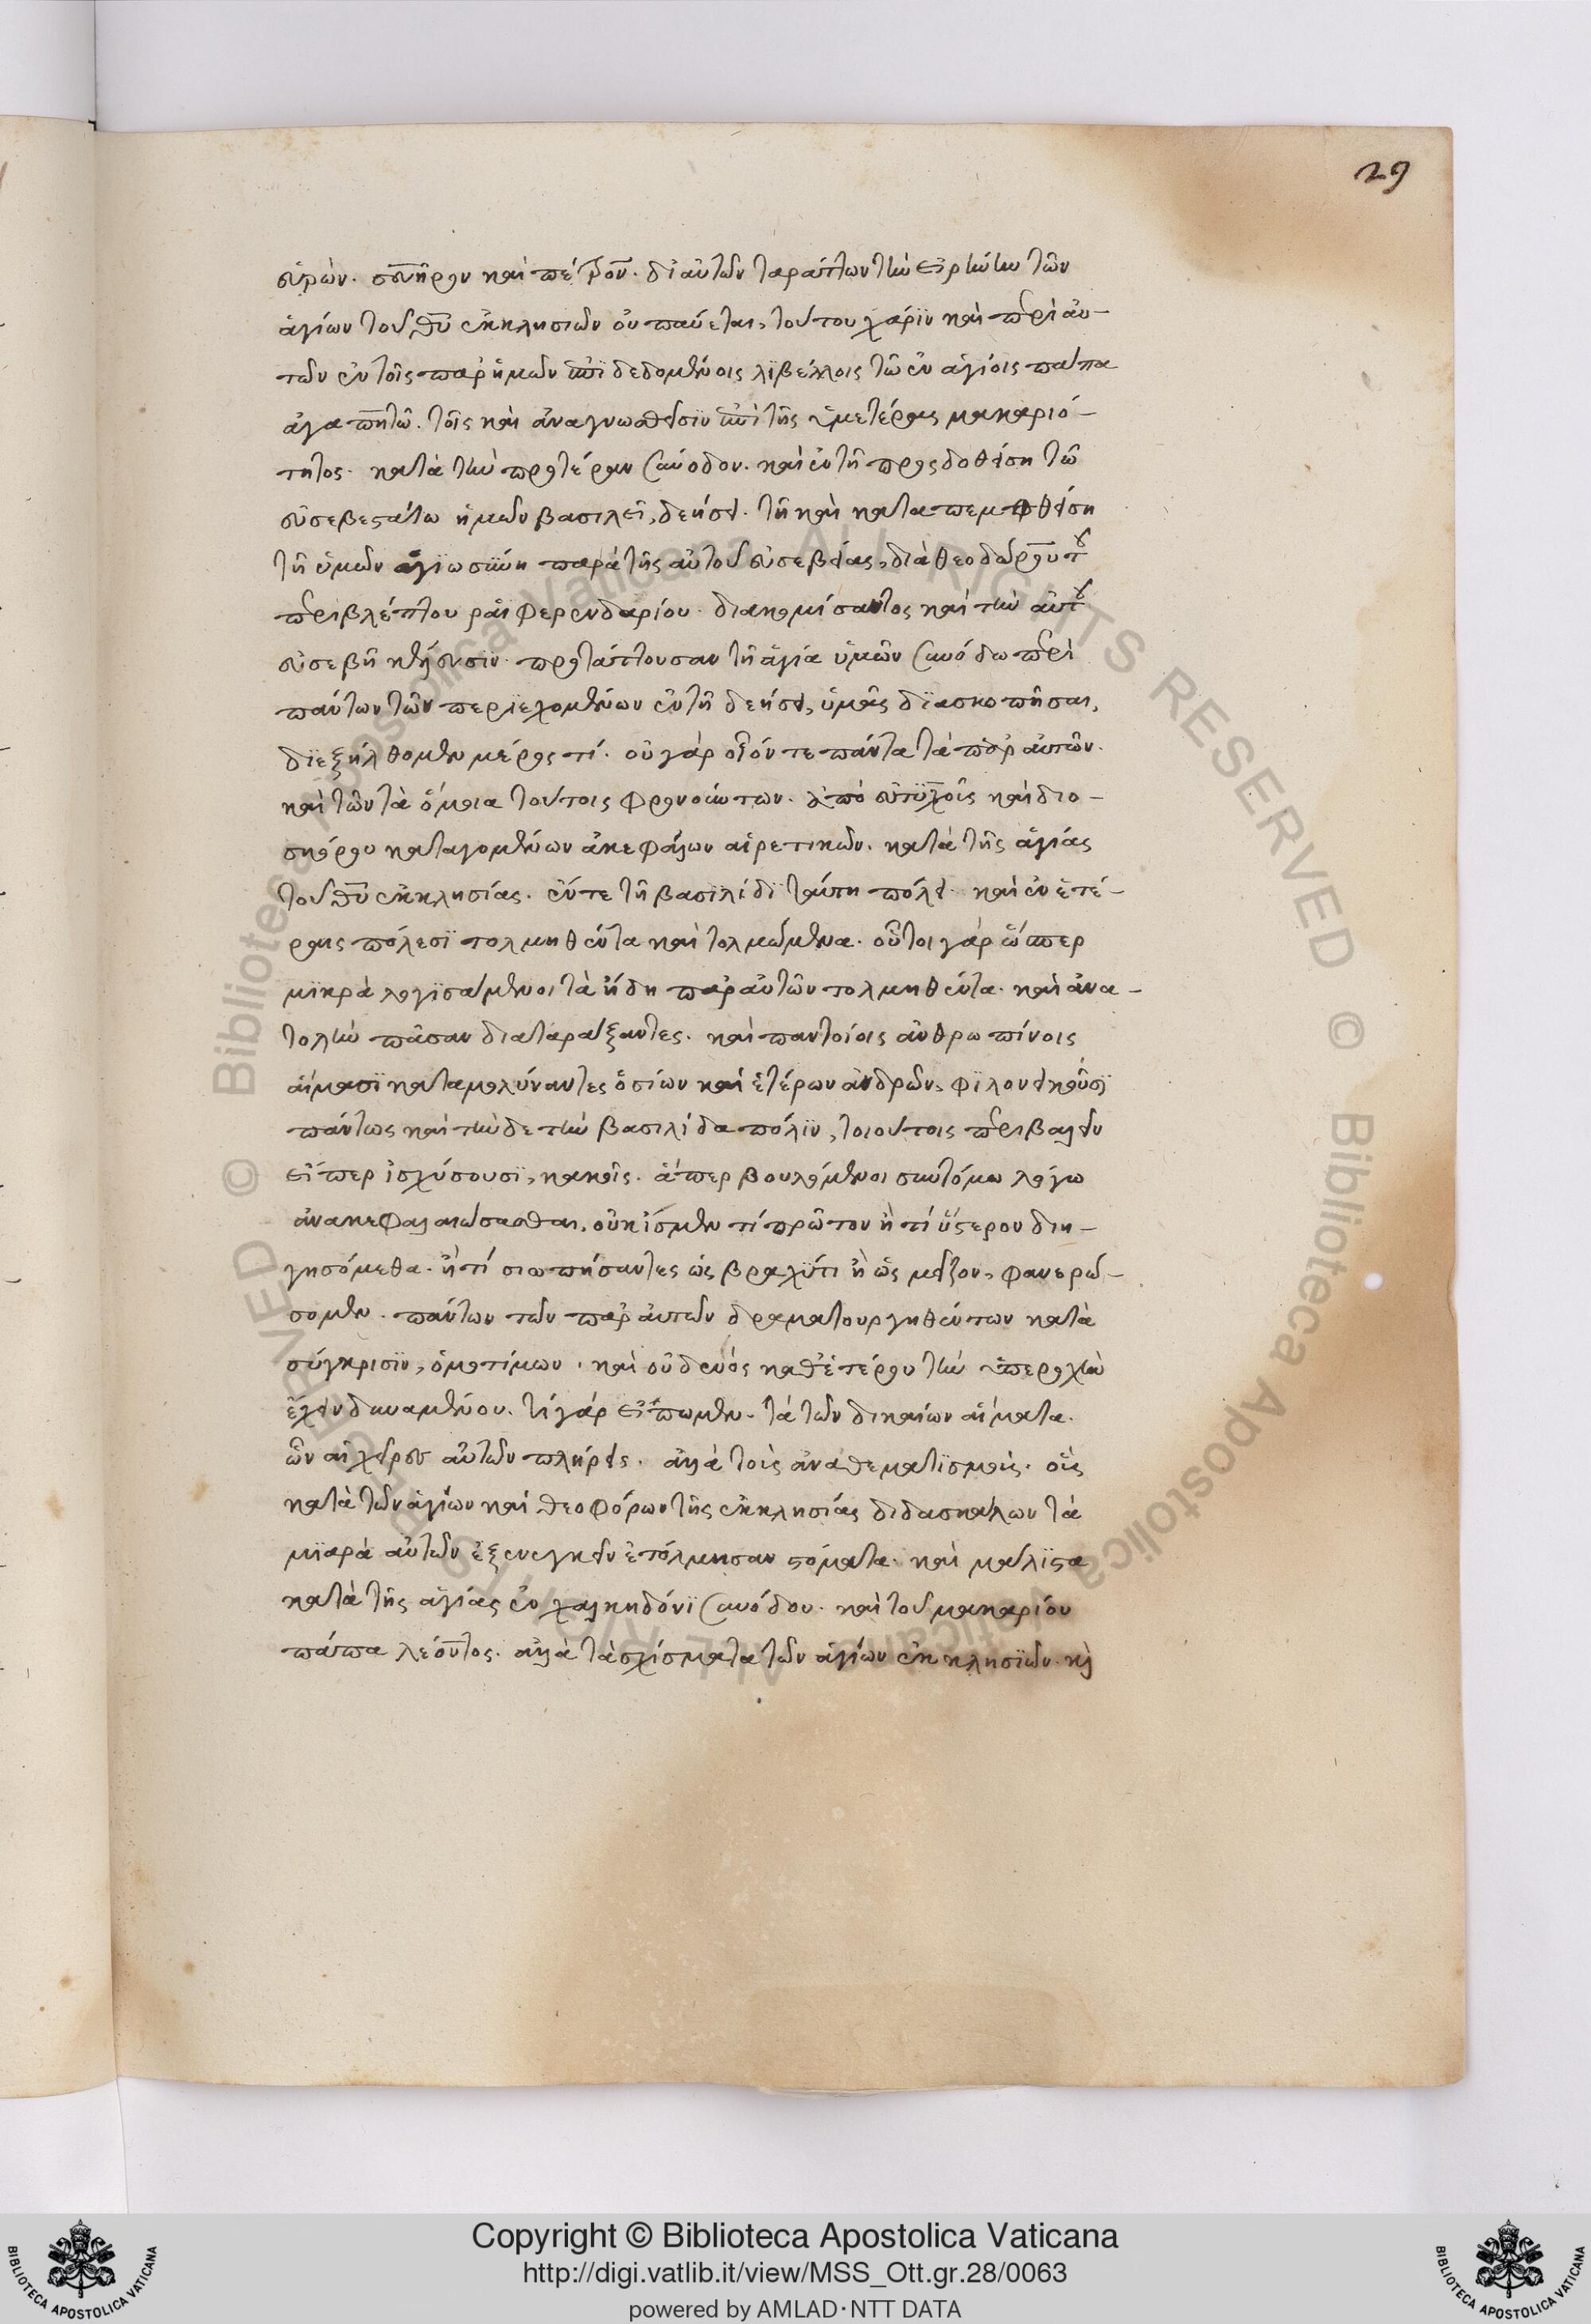 29
εὑρὼν. σευῆρον καὶ πέτρον. δι αὐτῶν ταράττων τὴν εἰρήνην τῶν
ἁγίων τοῦ θῦ ἐκκλησιῶν οὐ παύεται, τούτου χάριν καὶ περὶ αὐ-
τῶν ἐν τοῖς παρ ἡμῶν ἐπιδεδομένοις λιβέλλοις τῶ ἐν ἁγίοις πάπα
ἀγαπητῶ. τοῖς καὶ ἀναγνωσθεῖσιν ἐπὶ τῆς ὑμετέρας μακαριό-
τητος. κατὰ τὴν προτέραν σύνοδον. καὶ ἐν τῆ προςδοθείση τῶ
εὐσεβεστάτω ἡμῶν βασιλεῖ, δεήσει. τῆ καὶ καταπεμφθείση
τῆ ὑμῶν ἁγιωσύνη παρὰ τῆς αὐτοῦ εὐσεβείας, διὰ θεοδώρου τοῦ
περιβλέπτου ῥαιφερενδαρίου. διακομίσαντος καὶ τὴν αὐτοῦ
εὐσεβῆ κέλευσιν. προτάττουσαν τῆ ἁγία ὑμῶν συνόδω περὶ
πάντων τῶν περιεχομένων ἐν τῆ δεήσει, ὑμᾶς διασκοπῆσαι,
διεξήλθομεν μέρος τί. οὐ γὰρ οἷόν τε πάντα τὰ παρ αὐτῶν.
καὶ τῶν τὰ ὅμοια τούτοις φρονούντων. ἀπὸ εὐτυχοῦς καὶ διο-
σκόρου καταγομένων ἀκεφάλων αἱρετικῶν. κατὰ τῆς ἁγίας
τοῦ θῦ ἐκκλησίας. ἔν τε τῆ βασιλίδι ταύτη πόλει καὶ ἐν ἑτέ-
ραις πόλεσι τολμηθέντα καὶ τολμώμενα. οὗτοι γὰρ ὥσπερ
μικρὰ λογισάμενοι τὰ ἤδη παρ αὐτῶν τολμηθέντα. καὶ ἀνα-
τολὴν πᾶσαν διαταράξαντες. καὶ παντοίοις ἀνθρωπίνοις
αἵμασι καταμολύναντες ὁσίων καὶ ἑτέρων ἀνδρῶν, φιλονεικοῦσι
πάντως καὶ τήνδε τὴν βασιλίδα πόλιν, τοιούτοις περιβαλεῖν
εἴπερ ἰσχύσουσι, κακοῖς. ἅπερ βουλόμενοι συντόμω λόγω
ἀνακεφαλαιώσασθαι, οὐκ ἴσμεν τί πρῶτον ἢ τί ὕστερον διη-
γησόμεθα. ἢ τί σιωπήσαντες ὡς βραχύ τι ἢ ὡς μεῖζον, φανερώ-
σομεν. πάντων τῶν παρ αὐτῶν δραματουργηθέντων κατὰ
σύγκρισιν, ὁμοτίμων. καὶ οὐδενὸς καθ ἑτέρου τὴν ὑπεροχὴν
ἔχειν δυναμένου. τί γὰρ εἴπωμεν. τὰ τῶν δικαίων αἵματα.
ὧν αἱ χεῖρες αὐτῶν πλήρεις. ἀλλὰ τοὺς ἀναθεματισμοὺς. οὓς
κατὰ τῶν ἁγίων καὶ θεοφόρων τῆς ἐκκλησίας διδασκάλων τὰ
μιαρὰ αὐτῶν ἐξενεγκεῖν ἐτόλμησαν στόματα. καὶ μάλιστα
κατὰ τῆς ἁγίας ἐν χαλκηδόνι συνόδου. καὶ τοῦ μακαρίου
πάπα λέοντος. ἀλλὰ τὰ σχίσματα τῶν ἁγίων ἐκκλησιῶν. κὶ
Copyright © Biblioteca Apostolica Vaticana
http://digi.vatlib.it/view/MSS_Ott.gr.28/0063
powered by AMLAD·NTT DATA